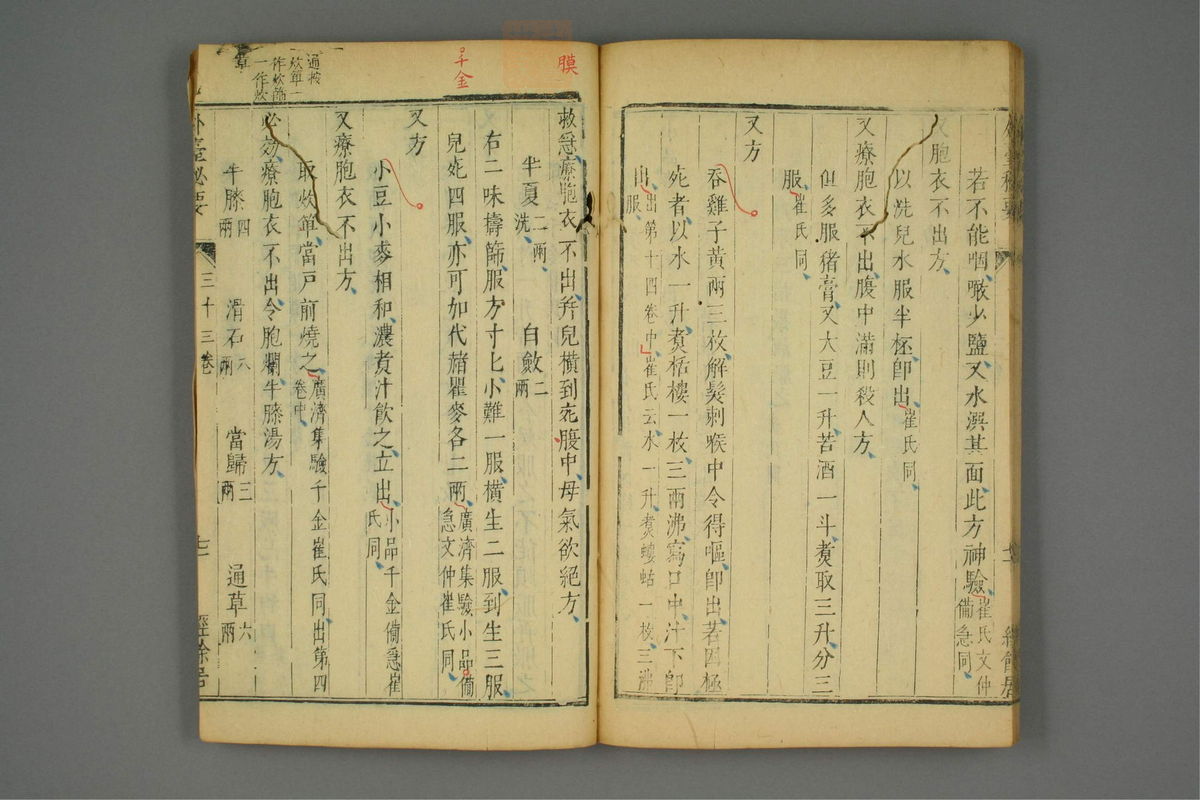 若不能咽噉少鹽又水潠其面此方神驗崔氏文仲備急同
又胞衣不出方
以洗兒水服半柸卽出崔氏同
又療胞衣不出腹中滿則殺人方
但多服猪膏又大豆一升苦酒一斗煑取三升分三
服崔氏同
又方
吞雞子黄兩三枚解髮刺喉中令得嘔卽出若因極
死者以水一升煑栝樓一枚三兩沸寫口中汁下卽
出出第十四卷中崔氏云水一升煑螻蛄一枚三沸服
膜
救急療胞衣不出并兒橫到死腹中母氣欲絕方
半夏二兩洗 白斂二兩
右二味擣篩服方寸匕小難一服橫生二服到生三服
千金
兒死四服亦可加代赭瞿麥各二兩廣濟集驗小品備急文仲崔氏同
又方
小豆小麥相和濃煑汁飲之立出小品千金備急崔氏同
又療胞衣不出方
通按
炊箄一
作炊蔽
一作炊
草
取炊箄當戸前燒之廣濟集驗千金崔氏同出第四卷中
必効療胞衣不出令胞爛牛膝湯方
牛膝四兩 滑石八兩 當歸三兩 通草六兩
外臺秘要 三十三卷 十二 經餘居